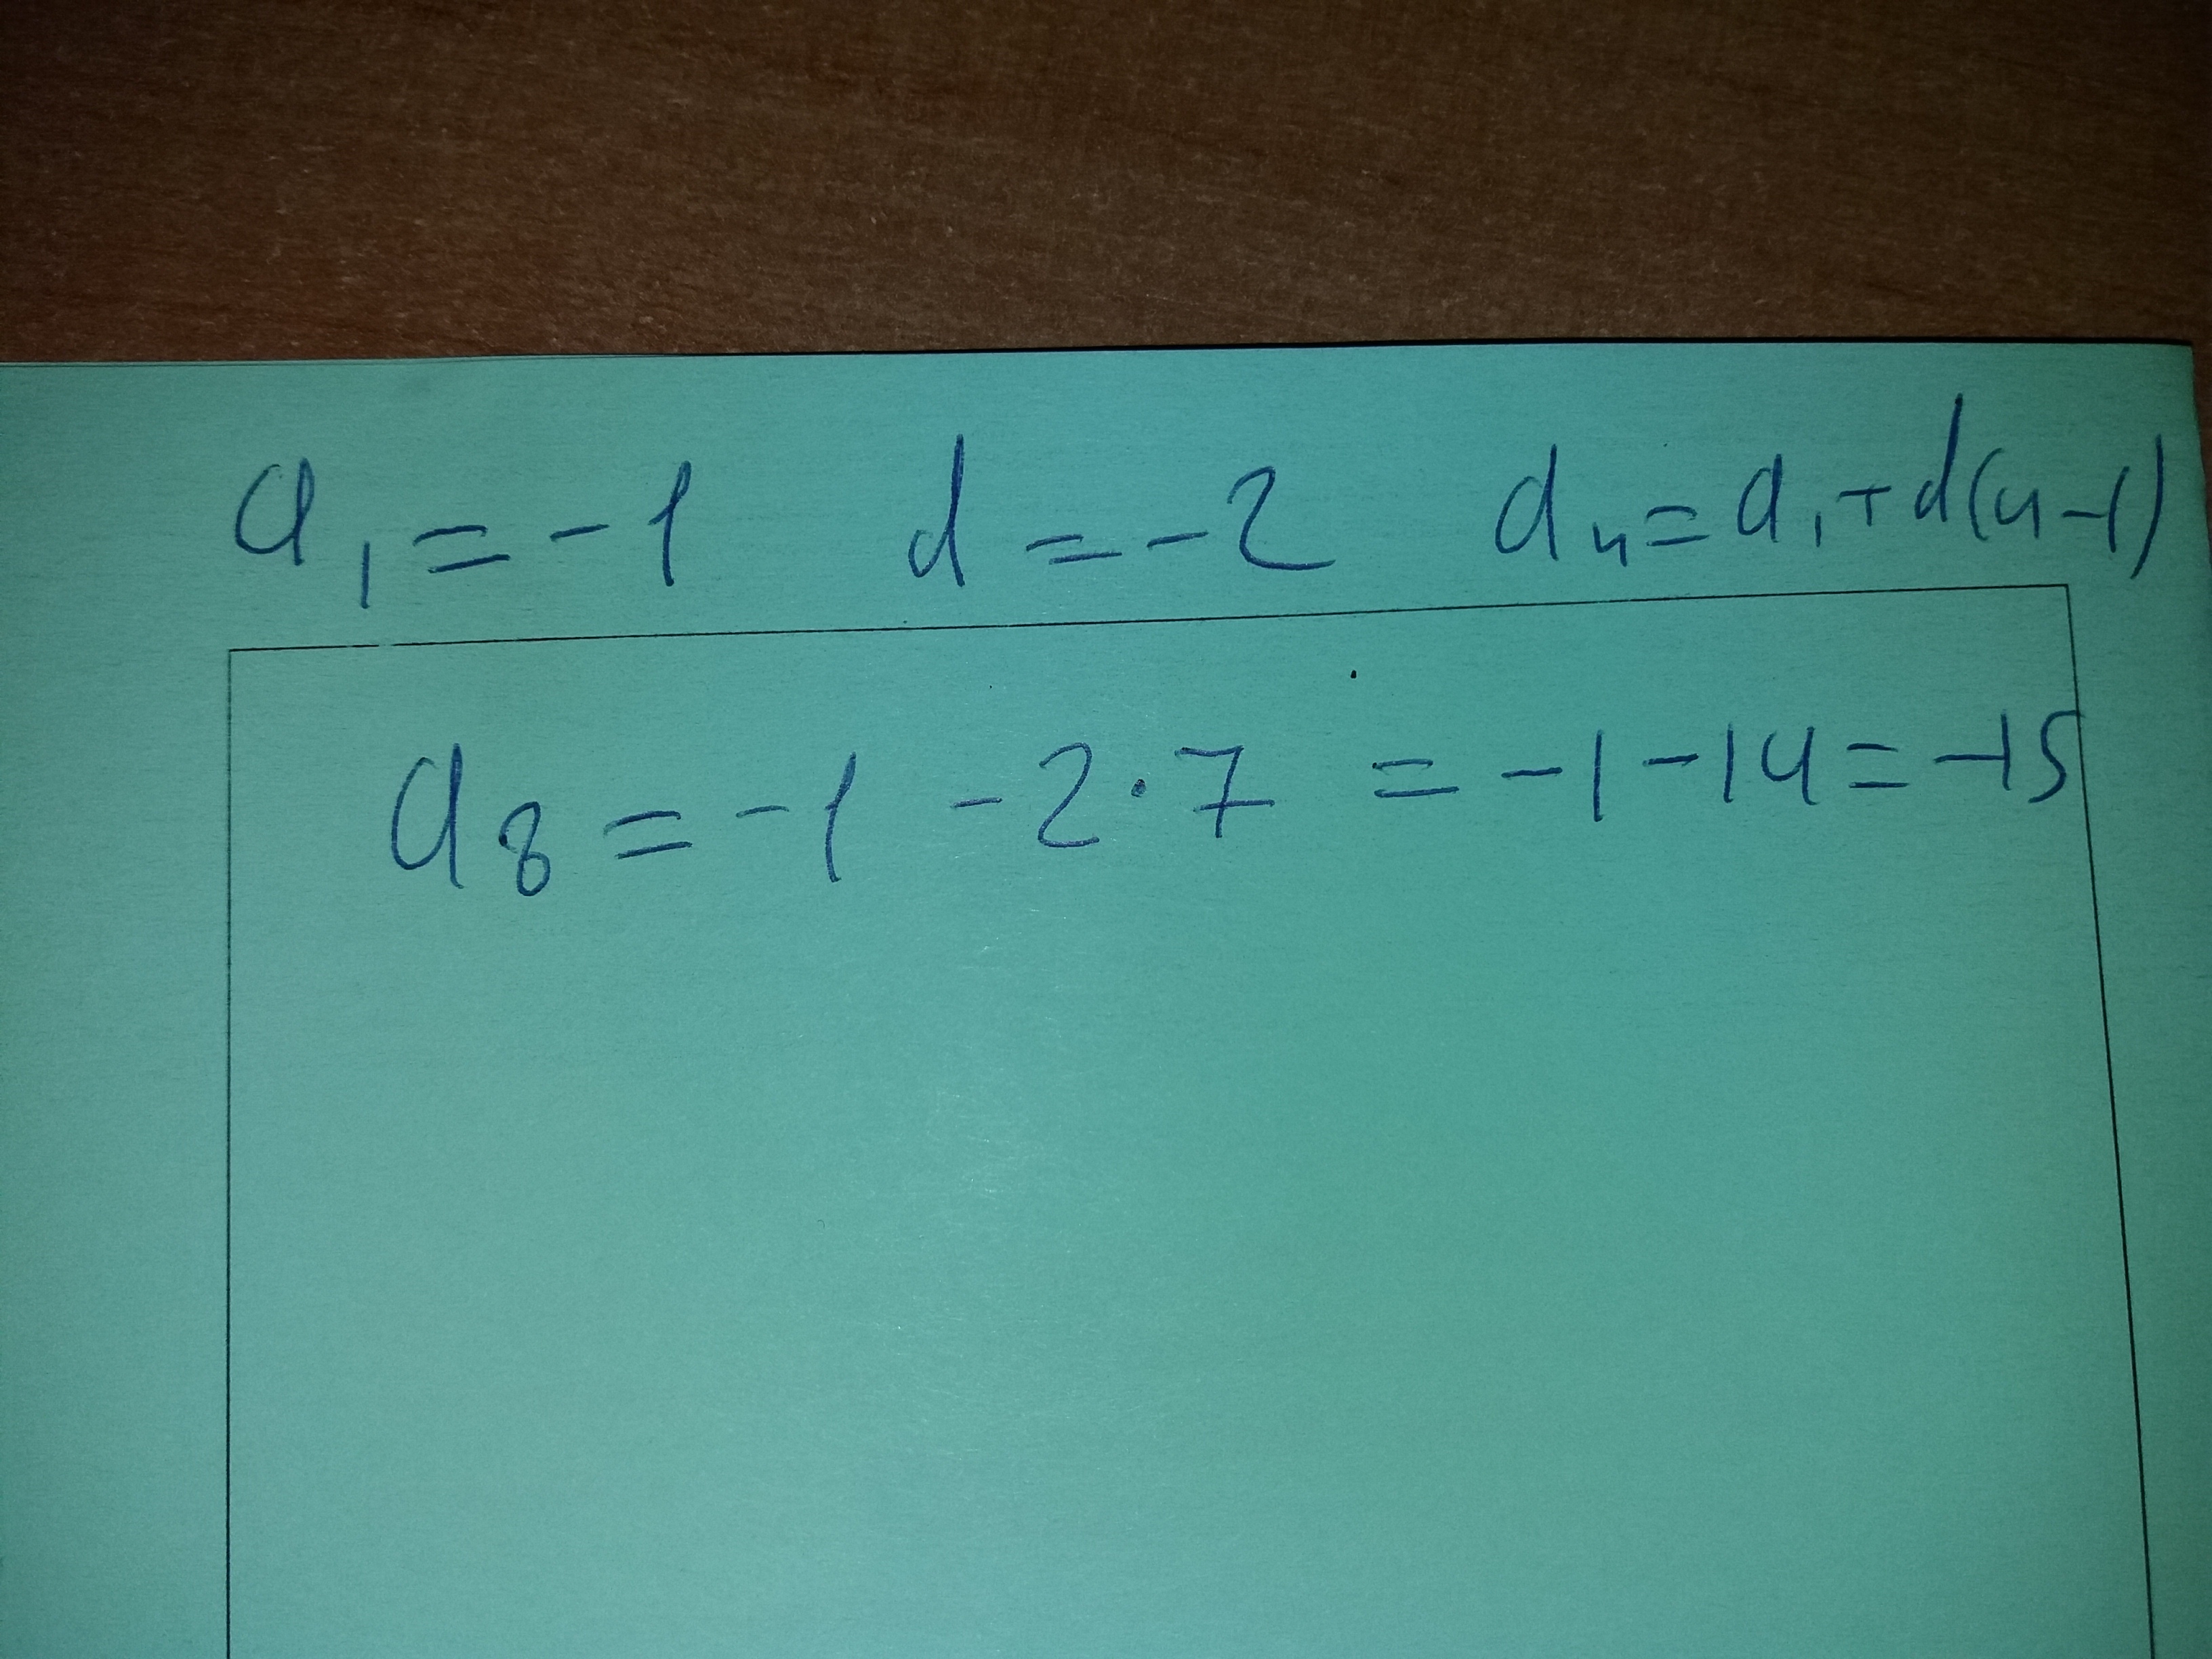 a₁ = -1 d = -2 aₙ = a₁ + d(n-1)
a₈ = -1 -2·7 = -1 -14 = -15